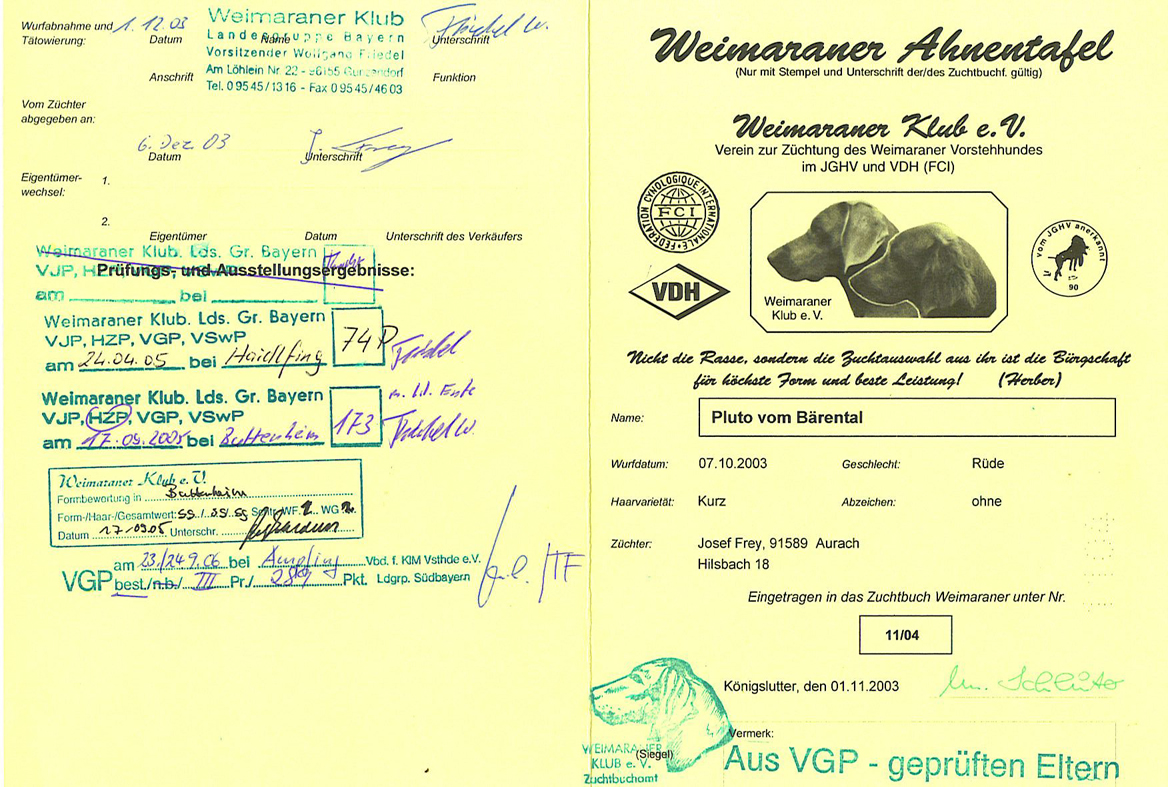 Wurfabnahme und 1.12.03
Tätowierung:
Datum Name Unterschrift
Weimaraner Klub
Landesgruppe Bayern
Vorsitzender Wolfgang Friedel
Am Löhlein Nr. 22 - 96155
Tel. 0 95 45 / 13 16 - Fax 0 95 45 / 46 03
Friedel W.
Anschrift Funktion
Vom Züchter
abgegeben an:
6. Dez. 03 J. Frey
Datum Unterschrift
Eigentümer-
wechsel:
1.
2.
Eigentümer Datum Unterschrift des Verkäufers
Weimaraner Klub. Lds. Gr. Bayern
VJP, HZP, VGP, VSwP
Prüfungs- und Ausstellungsergebnisse:
am bei
Weimaraner Klub. Lds. Gr. Bayern
VJP, HZP, VGP, VSwP
am 24.04.05 bei Haidlfing
74 P Friedel
Weimaraner Klub. Lds. Gr. Bayern
VJP, HZP, VGP, VSwP
am 17.09.2005 bei Buttenheim
173
m. ld. Ente
Friedel W.
Weimaraner Klub e. V.
Formbewertung in Buttenheim
Form-/Haar-/Gesamtwert: SG / SG / SG WF. 2 WG 2
Datum 17.09.05 Unterschr.
am 23./24.9.06 bei Ampfing Vbd. f. KlM Vsthde e.V.
VGP best./n.b./ III Pr./ Pkt. Ldgrp. Südbayern
Weimaraner Ahnentafel
(Nur mit Stempel und Unterschrift der/des Zuchtbuchf. gültig)
Weimaraner Klub e.V.
Verein zur Züchtung des Weimaraner Vorstehhundes
im JGHV und VDH (FCI)
FEDERATION CYNOLOGIQUE INTERNATIONALE
FCI
VDH
Weimaraner
Klub e. V.
vom JGHV anerkannt
90
Nicht die Rasse, sondern die Zuchtauswahl aus ihr ist die Bürgschaft
für höchste Form und beste Leistung! (Herber)
Name: Pluto vom Bärental
Wurfdatum: 07.10.2003 Geschlecht: Rüde
Haarvarietät: Kurz Abzeichen: ohne
Züchter: Josef Frey, 91589 Aurach
Hilsbach 18
Eingetragen in das Zuchtbuch Weimaraner unter Nr.
11/04
Königslutter, den 01.11.2003
WEIMARANER
KLUB e. V.
Zuchtbuchamt
(Siegel)
Vermerk:
Aus VGP - geprüften Eltern